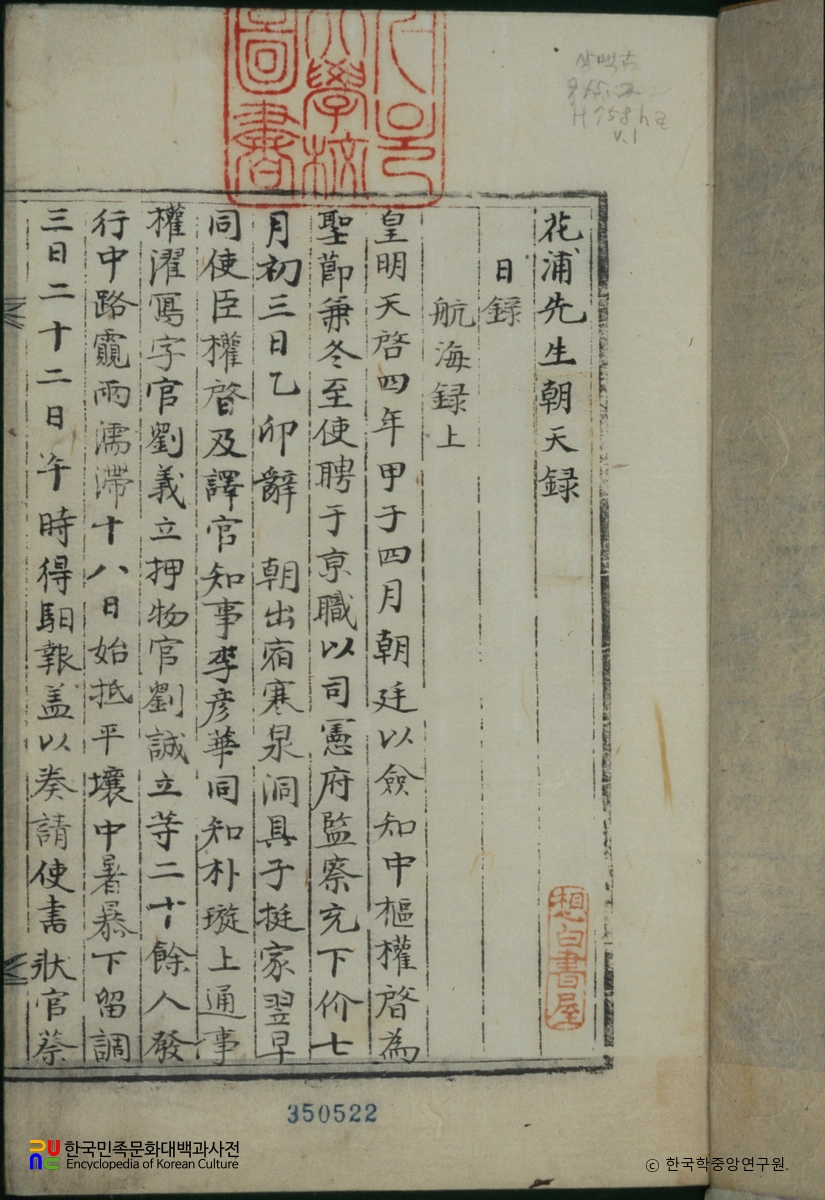 花浦先生朝天録
日録
航海録上
皇明天啓四年甲子四月朝廷以僉知中樞權啓為
聖節兼冬至使聘于京職以司憲府監察充下价七
月初三日乙卯辭 朝出宿寒泉洞具子挺家翌早
同使臣權啓及譯官知事李彦華同知朴璇上通事
權濯寫字官劉義立押物官劉誠立等二十餘人發
行中路霿雨濡滯十八日始抵平壤中暑暴下留調
三日二十二日午時得馹報盖以奏請使書狀官蔡
大學校
圖書
想白書屋
H758h
v.1
350522
한국민족문화대백과사전
Encyclopedia of Korean Culture
© 한국학중앙연구원.